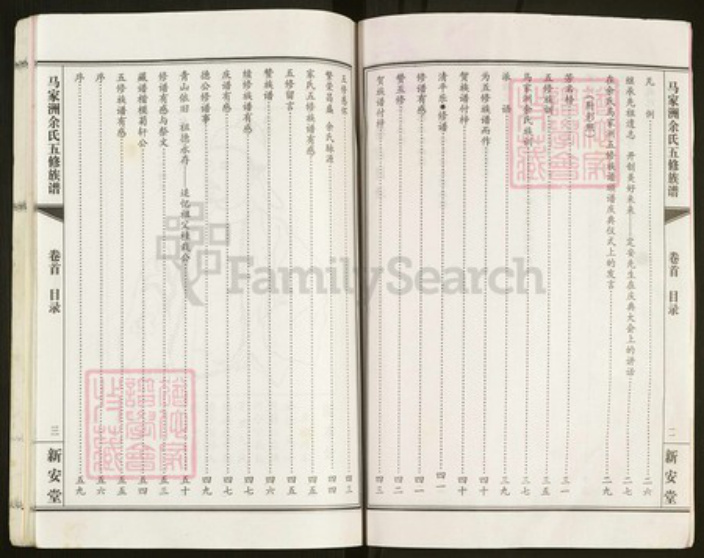 马家洲余氏五修族谱
卷首 目录
二
新安堂
凡例 二六
继承先祖遗志 开创美好未来——定安先生在庆典大会上的讲话 二七
在余氏马家洲五修族谱颁谱庆典仪式上的发言 二九
芳名榜(附彩照) 三一
五修族训 三五
马家洲余氏族训 三七
派语 三九
为五修族谱而作 四十
贺族谱付梓 四十
清平乐●修谱 四一
续谱有感 四一
赞五修 四二
贺族谱付梓 四三
五修感怀 四三
繁荣昌盛 余氏脉源 四四
家氏五修族谱有感 四四
五修留言 四五
赞族谱 四六
续修族谱有感 四七
庆谱有感 四七
德公修谱事 四九
青山依旧 祖德永存——追忆祖父桂载公 五十
修谱有感与祭文 五三
藏谱楷模菊轩公 五四
五修族谱有感 五五
序 五六
序 五九
马家洲余氏五修族谱
卷首 目录
三
新安堂
FamilySearch